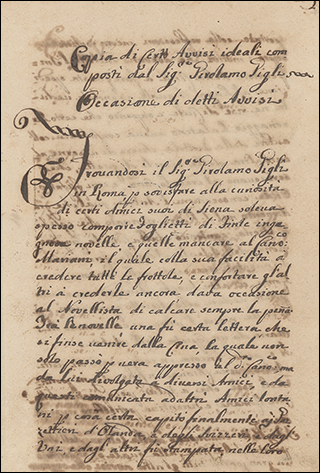 Copia di scritti Avvisi ideali com
posti dal Sig.re Girolamo Gigli
Occasione di detti Avvisi
Trovandosi il Sig.re Girolamo Gigli
in Roma p sodisfare alla curiosità
di certi Amici suoi di Siena soleva
spesso comporre Foglietti di Finte inge
gnose novelle, e quelle mancare al
Mariani, il quale colla sua facilità à
credere tutte le frottole, e confortare gl'al
tri à crederle ancora dava occasione
al Novellista di calcare sempre la penna
Frà le novelle una fù certa lettera che
si finse venire dalla Cina, la quale non
solo passò p vera appresso il d.o
ma da lui divolgata à diversi Amici, e da
questi comunicata ad altri Amici lonta
ni p cosa certa capitò finalmente a i Ga
zettieri d'Olanda, e degli Svizzeri, e dagl'
uni, e dagl'altri fù stampata nelle loro